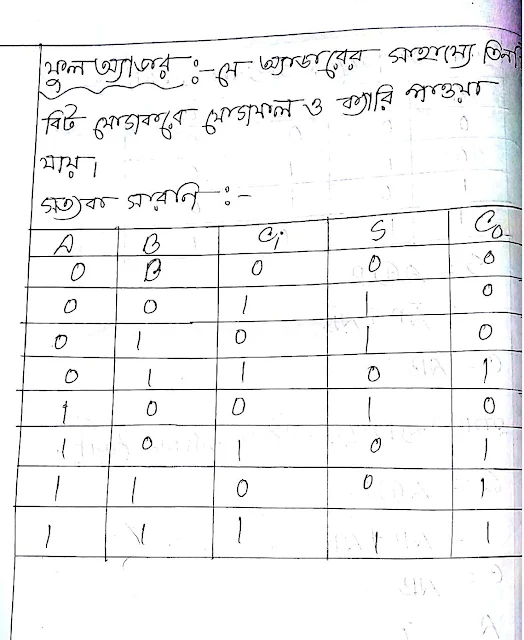 ফুল অ্যাডার :- যে অ্যাডারের সাহায্যে তিনটি
বিট যোগকরে যোগফল ও ক্যারি পাওয়া
যায়।
সত্যক সারণি :-
A B Ci S Co
0 0 0 0 0
0 0 1 1 0
0 1 0 1 0
0 1 1 0 1
1 0 0 1 0
1 0 1 0 1
1 1 0 0 1
1 1 1 1 1